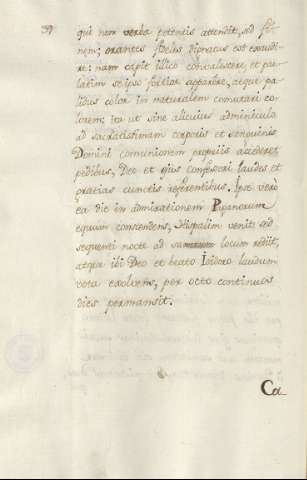 39
qui non verba petentis attendit, sed fi-
nem; orantis fletus dignatus est exaudi-
re: nam cœpit illico convalescere, et pau-
latim se ipso fortior apparere, atque pa-
lidus color in naturalem comutari co-
lorem; ita ut sine alicuius adminiculo
ad sacratissimam corporis et sanguinis
Domini comunionem propriis accederet
pedibus, Deo et eius confessori laudes et
gratias cunctis referentibus. Ipse verò
ea die in admirationem
equum conscendens, Hispalim venit: sed
sequenti nocte ad locum rediit,
atque ibi Deo et beato Isidoro laudum
vota exolvens, per octo continuos
dies permansit.
Ca